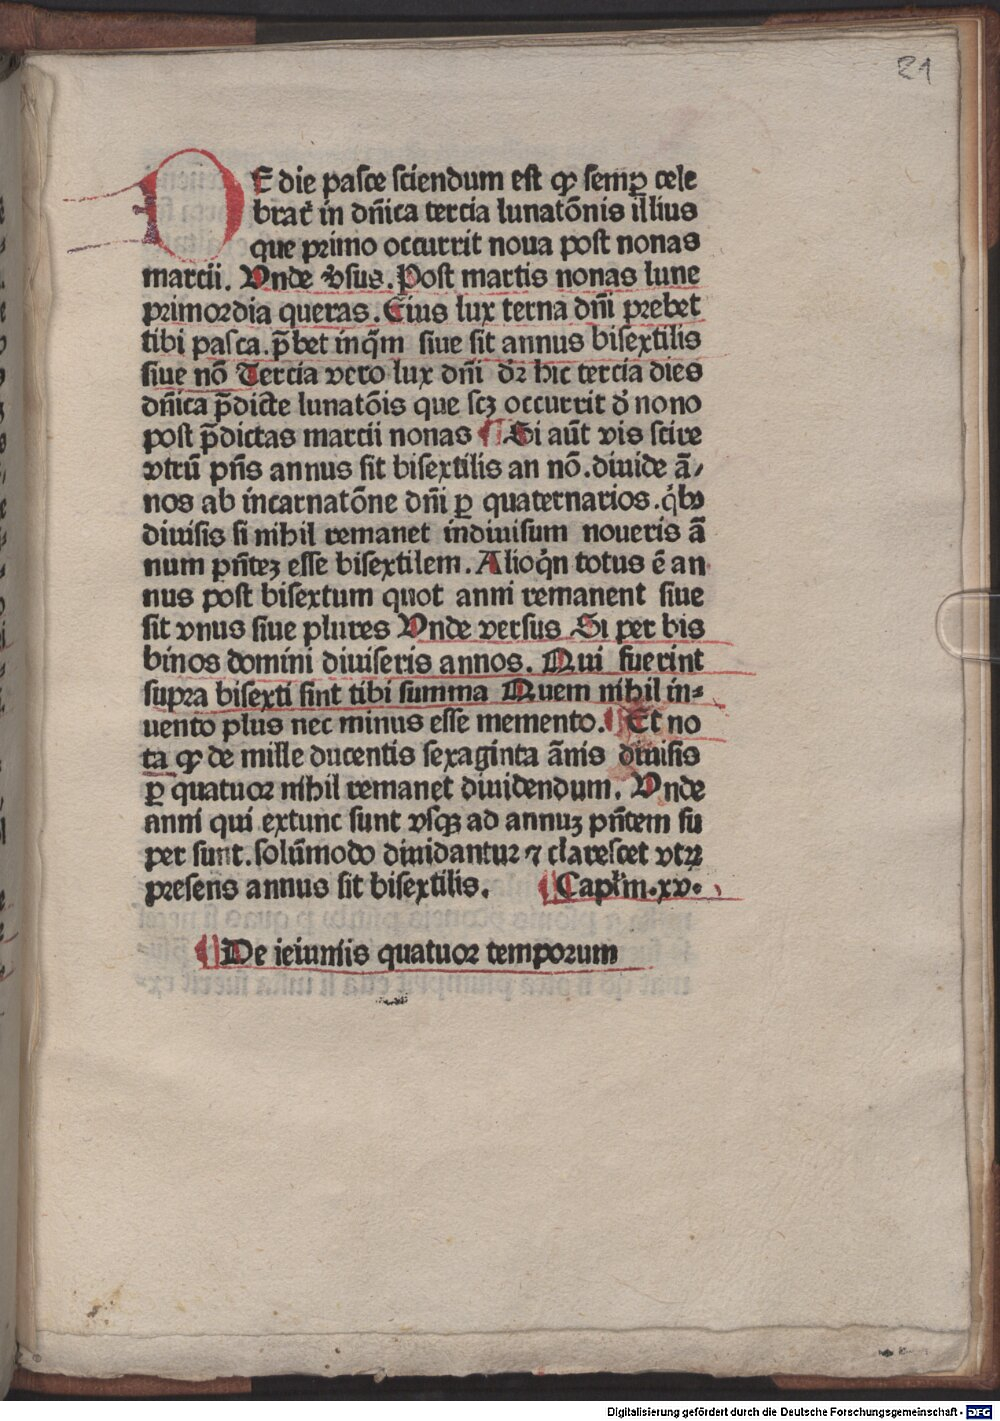 21
DE die pasce sciendum est ꝙ semꝑ cele
brat᷑ in dñica tercia lunatõnis illius
que primo occurrit noua post nonas
marcii. Vnde v̾sus. Post martis nonas lune
primordia queras. Eius lux terna dñi prebet
tibi pasca. p̄bet inq̄m siue sit annus bisextilis
siue nō Tercia vero lux dñi dr̄ hic tercia dies
dñica p̄dicte lunatōis que scꝫ occurrit d̾ nono
post p̄dictas marcii nonas ¶ Si aūt vis scire
vtrū pn̄s annus sit bisextilis an nō. diuide ā⸗
nos ab incarnatōne dñi ꝑ quaternarios. qͥbꝰ
diuisis si nihil remanet indiuisum noueris ā
num pn̄teꝫ esse bisextilem. Alioqͥn totus ē an
nus post bisextum quot anni remanent siue
sit vnus siue plures Vnde versus Si per bis
binos domini diuiseris annos. Qui fuerint
supra bisexti sint tibi summa Quem nihil in⸗
uento plus nec minus esse memento. ¶ Et no
ta ꝙ de mille ducentis sexaginta ānis diuisis
ꝑ quatuor nihil remanet diuidendum. Vnde
anni qui extunc sunt vsqꝫ ad annuꝫ pn̄tem su
per sunt. solūmodo diuidantur ⁊ clarescet vtꝝ
presens annus sit bisextilis. ¶ Capl̄m .xv.
¶ De ieiuniis quatuor temporum
Digitalisierung gefördert durch die Deutsche Forschungsgemeinschaft - DFG